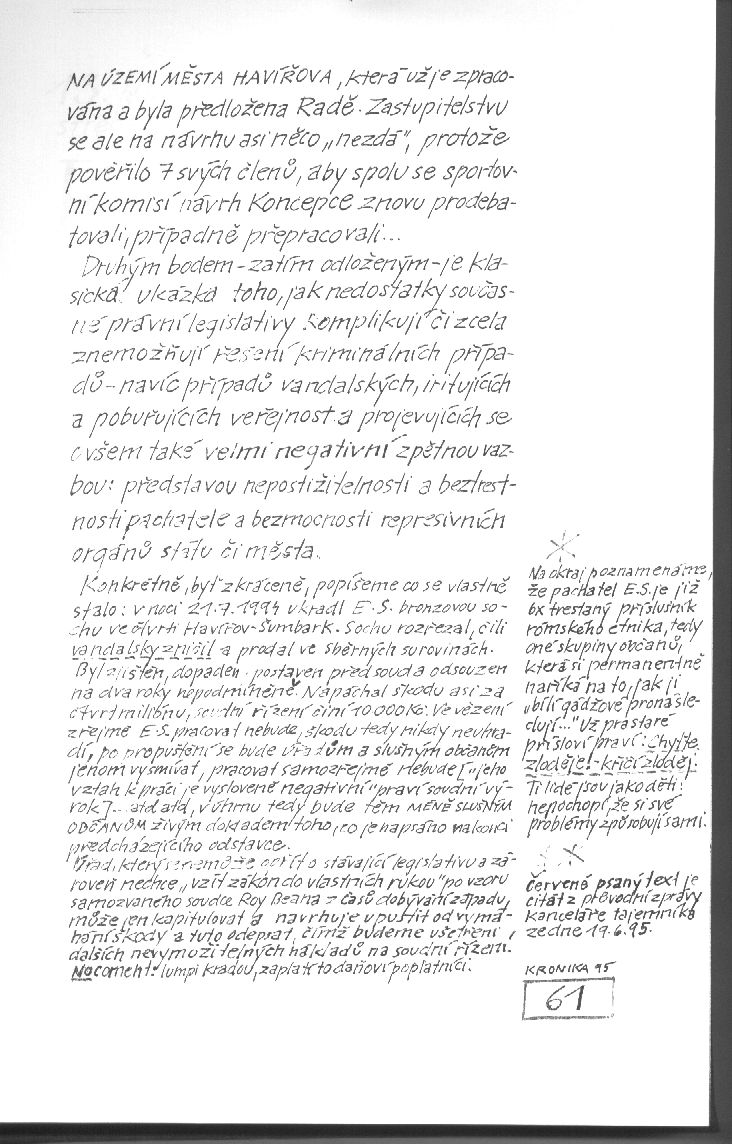 NA ÚZEMÍ MĚSTA HAVÍŘOVA, která už je zpraco-
vána a byla předložena Radě. Zastupitelstvu
se ale na návrhu asi něco „nezdá", protože
pověřilo 7 svých členů, aby spolu se sportov-
ní komisí návrh Koncepce znovu prodeba-
tovali, případně přepracovali...
Druhým bodem - zatím odloženým - je kla-
sická ukázka toho, jak nedostatky součas-
né právní legislativy komplikují či zcela
znemožňují řešení kriminálních přípa-
dů - navíc případů vandalských, iritujících
a pobuřujících veřejnost a projevujících se
ovšem také velmi negativní zpětnou vaz-
bou: představou nepostižitelnosti a beztrest-
nosti pachatele a bezmocnosti represivních
orgánů státu či města.
Konkrétně, byť zkráceně, popíšeme co se vlastně
stalo: v noci 21.7.1994 ukradl E.S. bronzovou so-
chu ve čtvrti Havířov-Šumbark. Sochu rozřezal, čili
vandalsky zničil a prodal ve sběrných surovinách.
Byl zjištěn, dopaden, postaven před soud a odsouzen
na dva roky nepodmíněně. Napáchal škodu asi za
čtvrt milionu, soudní řízení činí 10 000 Kč. Ve vězení
zřejmě E.S. pracovat nebude, škodu tedy nikdy neuhra-
dí, po propuštění se bude úřadům a slušným občanům
jenom vysmívat, pracovat samozřejmě nebude ["jeho
vztah k práci je vysloveně negativní" praví soudní vý-
rok]... atd atd, v úhrnu tedy bude těm MÉNĚ SLUŠNÝM
OBČANŮM živým dokladem toho, co je napsáno na konci
předcházejícího odstavce.
Úřad, který se nemůže opřít o stávající legislativu a zá-
roveň nechce „vzít zákon do vlastních rukou" po vzoru
samozvaného soudce Roy Beana z časů dobývání západu,
může jen kapitulovat a navrhuje upustit od vymá-
hání škody a tuto odepsat, čímž budeme ušetřeni
dalších nevymožitelných nákladů na soudní řízení.
No coment! lumpi kradou, zaplatí to daňoví poplatníci.
Na okraj poznamenáme,
že pachatel E.S. je již
6x trestaný příslušník
rómského etnika, tedy
oné skupiny občanů,
která si permanentně
naříká na to, jak ji
„bílí gádžové pronásle-
dují..." Už prastaré
přísloví praví: Chyťte
zloděje! - křičí zloděj.
Ti lidé jsou jako děti:
nepochopí, že si své
problémy způsobují sami.
Červeně psaný text je
citát z průvodní zprávy
kanceláře tajemníka
ze dne 19.6.95.
KRONIKA 95
61